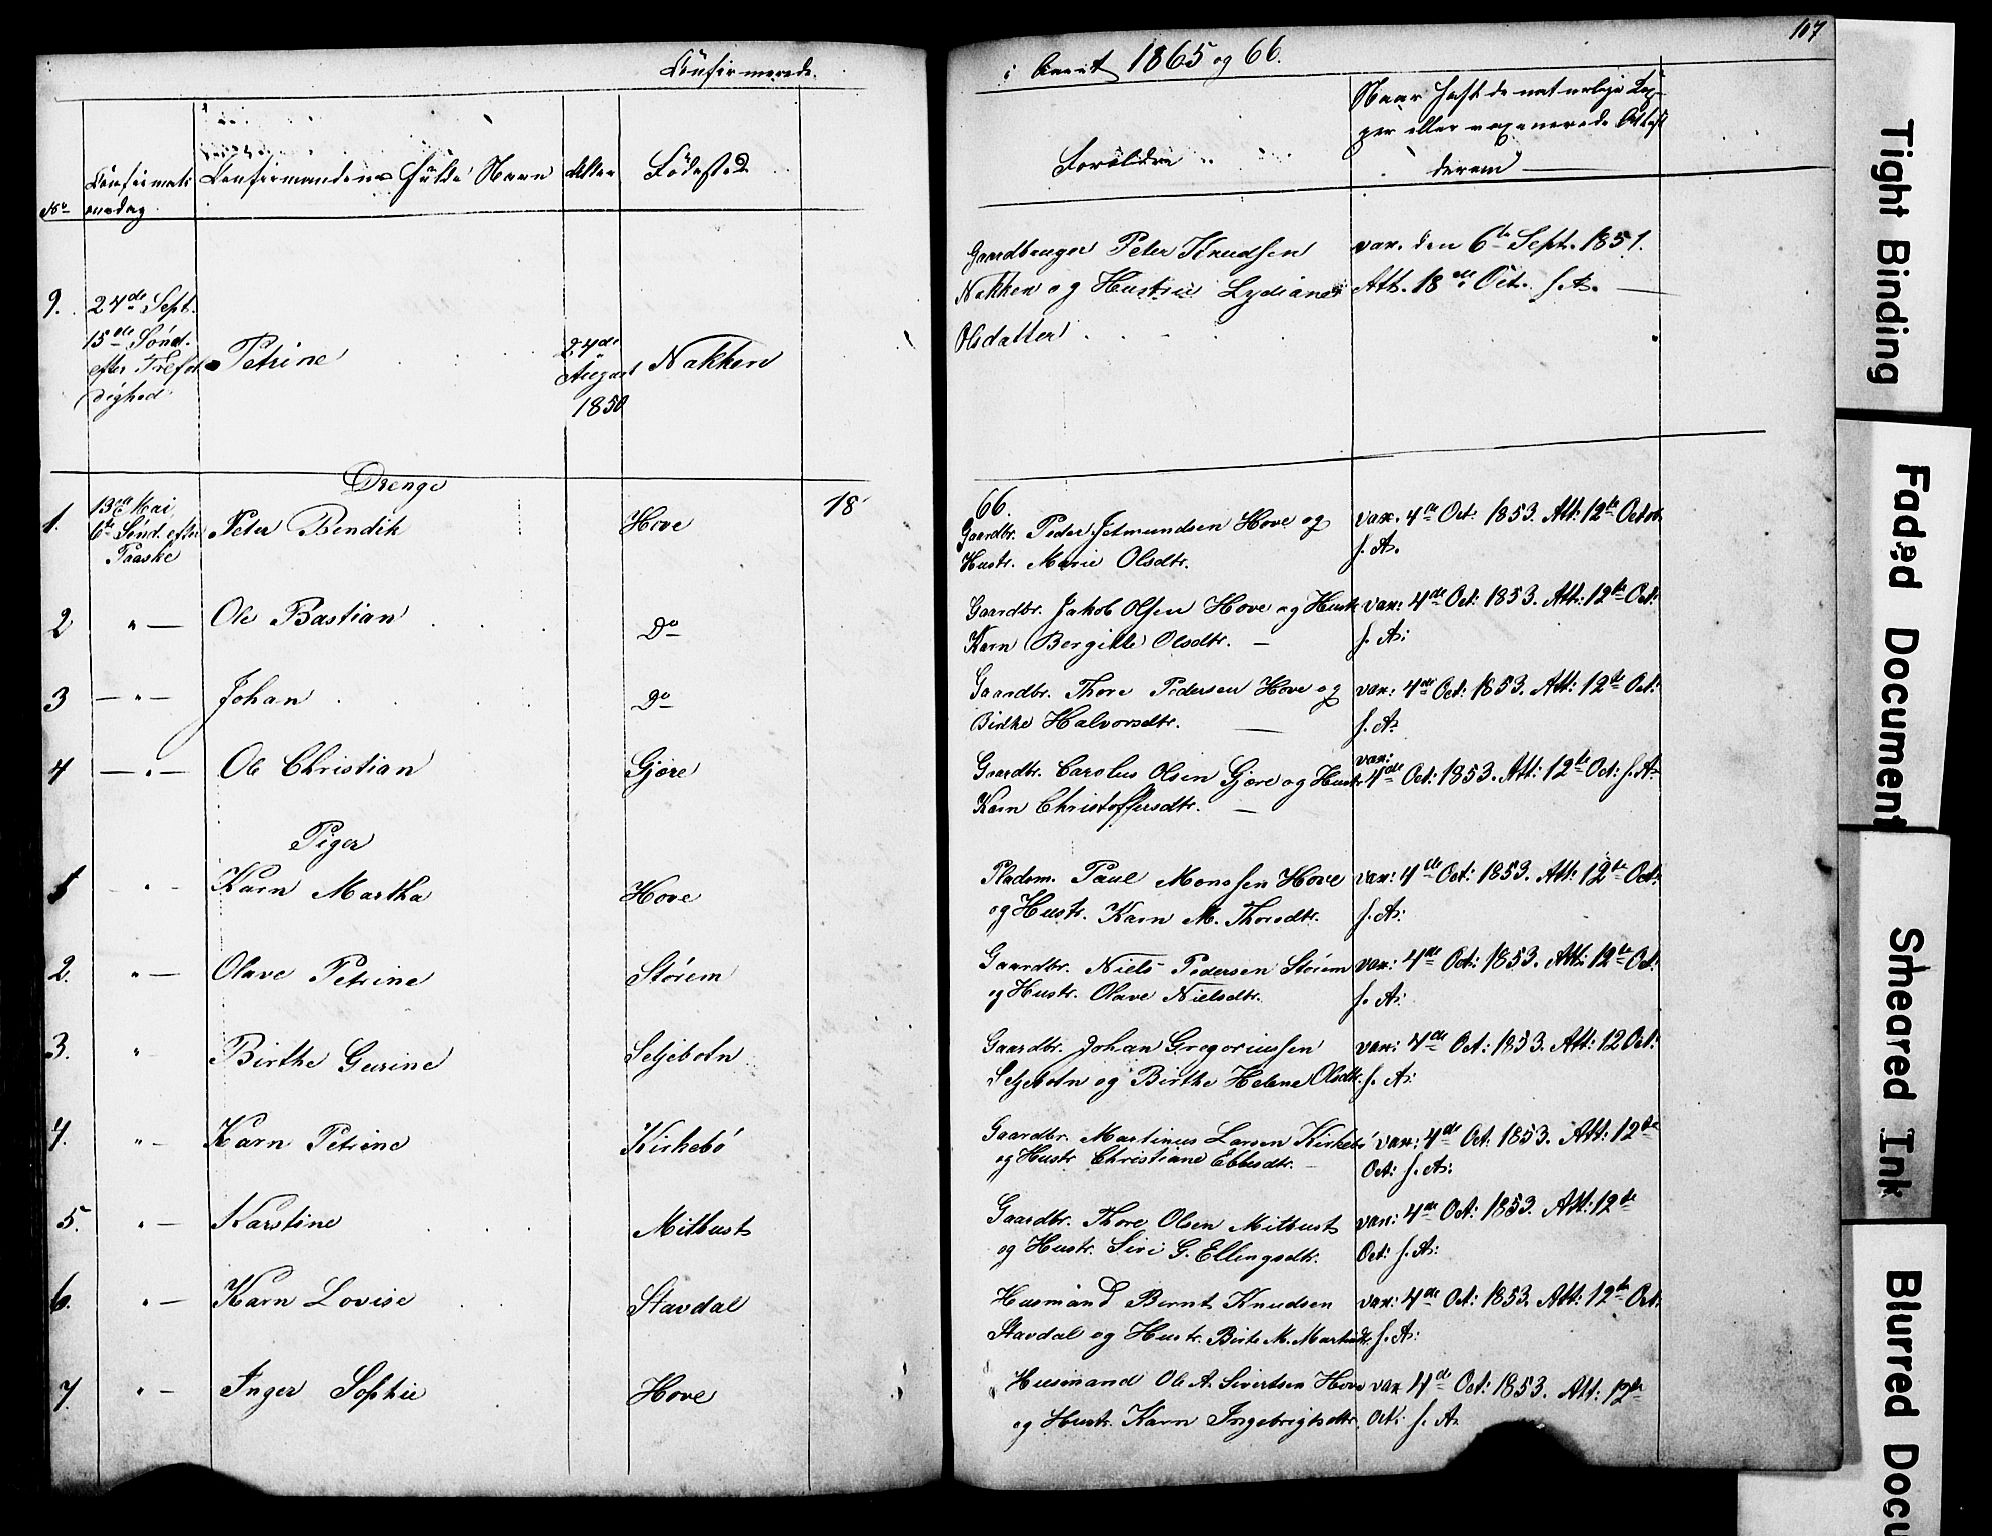 Confirmerede
i Aaret 1865 og 66.
107
No
Confirmati
onsdag
Confirmandens fulde Navn
Alter
Födested
Forældre
Naar havt de naturlige Kop-
per eller vaxinerede Attest
derom
9.
24de Sept.
15de Sönd.
efter Trefol
dighed
Petrine
24de
August
1850
Nakken
Gaardbruger Peter Knudsen
Nakken og Hustru Lydiane
Olsdatter
vax. den 6te Sept. 1851.
Att. 18de Oct. s. A.
Drenge
18
66.
1.
13de Mai
6te Sönd. efter
Paaske
Peter Bendik
Hove
Gaardbr. Peder Jetmundsen Hove og
Hustr. Marie Olsdtr.
vax. 4de Oct. 1853. Att: 12te Octob.
s. A.
2
" —
Ole Bastian
Do
Gaardbr. Jakob Olsen Hove og Hustr.
Karn Bergitte Olsdtr. —
vax: 4de Oct: 1853. Att: 12te Oct:
s. A:
3
— " —
Johan
Do
Gaardbr. Thore Pedersen Hove og
Birthe Halvorsdtr. —
vax: 4de Oct: 1853. Att: 12te Oct:
s. A:
4
— " —
Ole Christian
Gjöre
Gaardbr. Carolus Olsen Gjöre og Hustr.
Karn Christoffersdtr. —
vax:
4de Oct: 1853. Att: 12te Oct: s. A:
Piger
1
" —
Karn Martha
Hove
Pladsm. Paul Monssen Hove
og Hustr. Karn M. Thoresdtr.
vax: 4de Oct: 1853. Att: 12te Oct:
s. A:
2.
" —
Olave Petrine
Störem
Gaardbr. Niels Pedersen Störem
og Hustr. Olave Nielsdtr.
vax: 4de Oct: 1853. Att: 12te Oct:
s. A:
3.
" —
Birthe Gurine
Seljebotn
Gaardbr. Johan Gregoriussen
Seljebotn og Birthe Helene Olsdtr.
vax: 4de Oct: 1853. Att: 12 Oct:
s. A:
4.
" —
Karn Petrine
Kirkebö
Gaardbr. Martinus Larsen Kirkebö
og Hustr Christiane Ebbesdtr. —
vax: 4de Oct. 1853. Att: 12te
Oct: s. A:
5.
" —
Karstine
Mitbust
Gaardbr. Thore Olsen Mitbust
og Hustr. Siri G. Ellingsdtr.
vax: 4de Oct: 1853. Att: 12te
Oct: s. A:
6.
" —
Karn Lovise
Stavdal
Husmand Bernt Knudsen
Stavdal og Hustr. Birte M. Martinsdtr.
vax: 4de Oct: 1853. Att: 12te Oct:
s. A:
7.
" —
Inger Sophie
Hove
Husmand Ole A. Sivertsen Hove
og Hustr. Karn Ingebrigtsdtr.
vax 4de Oct: 1853. Att: 12te
Oct: s. A.
Tight Binding
Faded Document
Smeared Ink
Blurred Docu